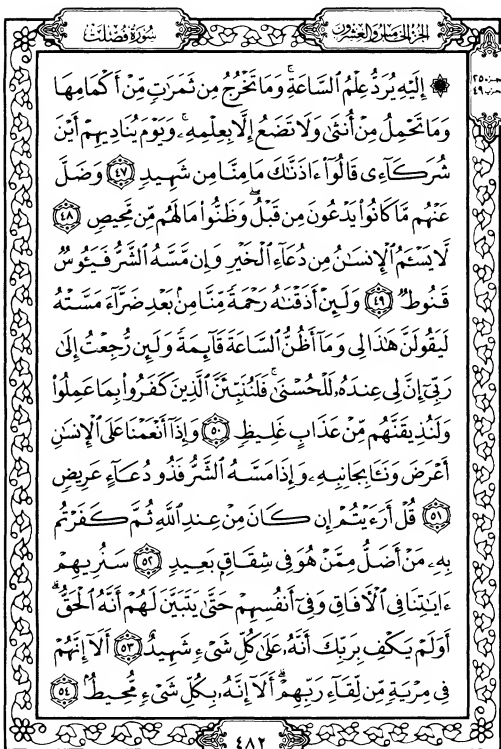 الجزء الخامس والعشرون
سورة فصلت
جزء ٢٥
حزب ٤٩
۞ إِلَيْهِ يُرَدُّ عِلْمُ السَّاعَةِ ۚ وَمَا تَخْرُجُ مِن ثَمَرَٰتٍ مِّنْ أَكْمَامِهَا
وَمَا تَحْمِلُ مِنْ أُنثَىٰ وَلَا تَضَعُ إِلَّا بِعِلْمِهِۦ ۚ وَيَوْمَ يُنَادِيهِمْ أَيْنَ
شُرَكَآءِى قَالُوٓا۟ ءَاذَنَّٰكَ مَا مِنَّا مِن شَهِيدٍ ٤٧ وَضَلَّ
عَنْهُم مَّا كَانُوا۟ يَدْعُونَ مِن قَبْلُ ۖ وَظَنُّوا۟ مَا لَهُم مِّن مَّحِيصٍ ٤٨
لَّا يَسْـَٔمُ ٱلْإِنسَٰنُ مِن دُعَآءِ ٱلْخَيْرِ وَإِن مَّسَّهُ ٱلشَّرُّ فَيَـُٔوسٌ
قَنُوطٌ ٤٩ وَلَئِنْ أَذَقْنَٰهُ رَحْمَةً مِّنَّا مِنۢ بَعْدِ ضَرَّآءَ مَسَّتْهُ
لَيَقُولَنَّ هَٰذَا لِى وَمَآ أَظُنُّ ٱلسَّاعَةَ قَآئِمَةً وَلَئِن رُّجِعْتُ إِلَىٰ
رَبِّىٓ إِنَّ لِى عِندَهُۥ لَلْحُسْنَىٰ ۚ فَلَنُنَبِّئَنَّ ٱلَّذِينَ كَفَرُوا۟ بِمَا عَمِلُوا۟
وَلَنُذِيقَنَّهُم مِّنْ عَذَابٍ غَلِيظٍ ٥٠ وَإِذَآ أَنْعَمْنَا عَلَى ٱلْإِنسَٰنِ
أَعْرَضَ وَنَـَٔا بِجَانِبِهِۦ وَإِذَا مَسَّهُ ٱلشَّرُّ فَذُو دُعَآءٍ عَرِيضٍ
٥١ قُلْ أَرَءَيْتُمْ إِن كَانَ مِنْ عِندِ ٱللَّهِ ثُمَّ كَفَرْتُم
بِهِۦ مَنْ أَضَلُّ مِمَّنْ هُوَ فِى شِقَاقٍۭ بَعِيدٍ ٥٢ سَنُرِيهِمْ
ءَايَٰتِنَا فِى ٱلْءَافَاقِ وَفِىٓ أَنفُسِهِمْ حَتَّىٰ يَتَبَيَّنَ لَهُمْ أَنَّهُ ٱلْحَقُّ ۗ
أَوَلَمْ يَكْفِ بِرَبِّكَ أَنَّهُۥ عَلَىٰ كُلِّ شَىْءٍ شَهِيدٌ ٥٣ أَلَآ إِنَّهُمْ
فِى مِرْيَةٍ مِّن لِّقَآءِ رَبِّهِمْ ۗ أَلَآ إِنَّهُۥ بِكُلِّ شَىْءٍ مُّحِيطٌۢ ٥٤
٤٨٢